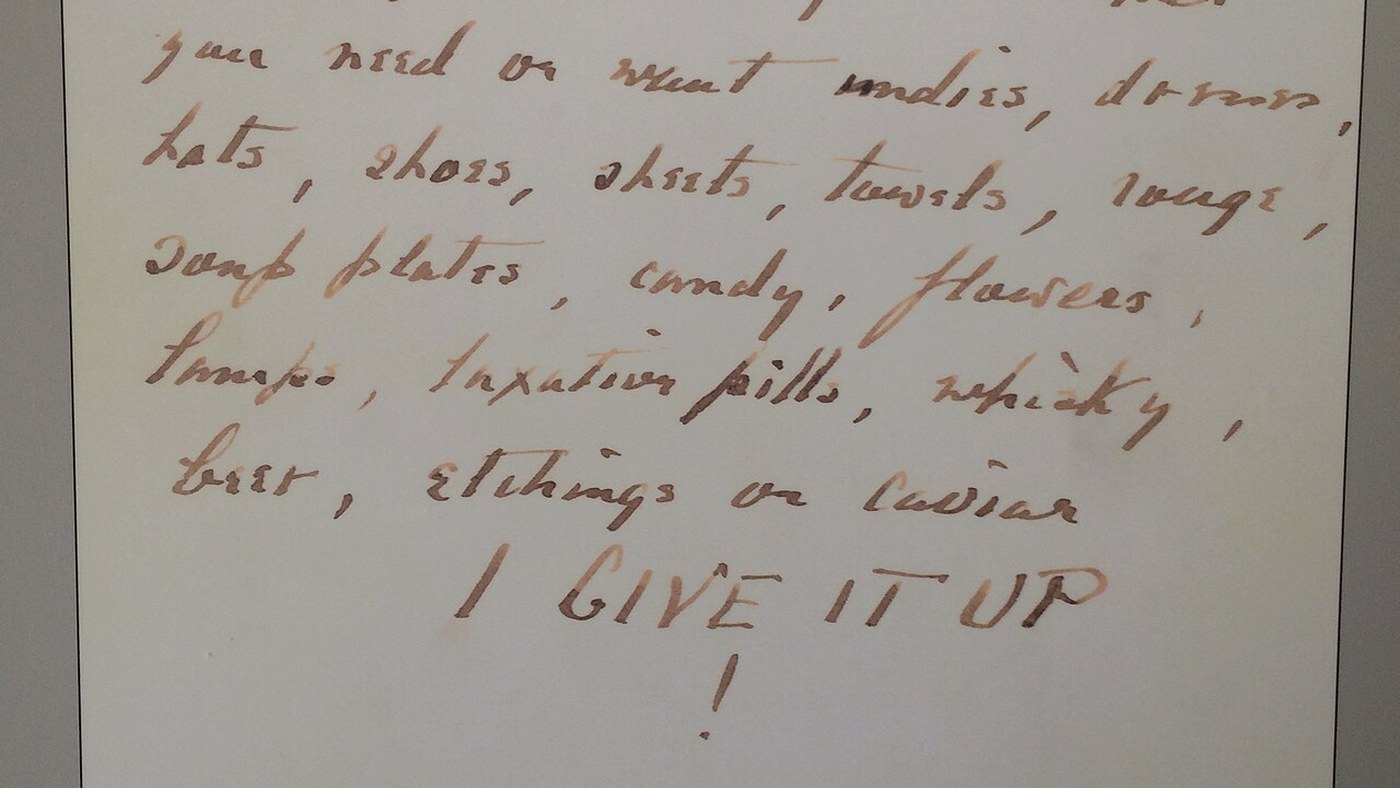 you need or want undies, dresses,
hats, shoes, sheets, towels, rouge,
soup plates, candy, flowers,
lamps, laxative pills, whisky,
beer, etchings or caviar
I GIVE IT UP
!